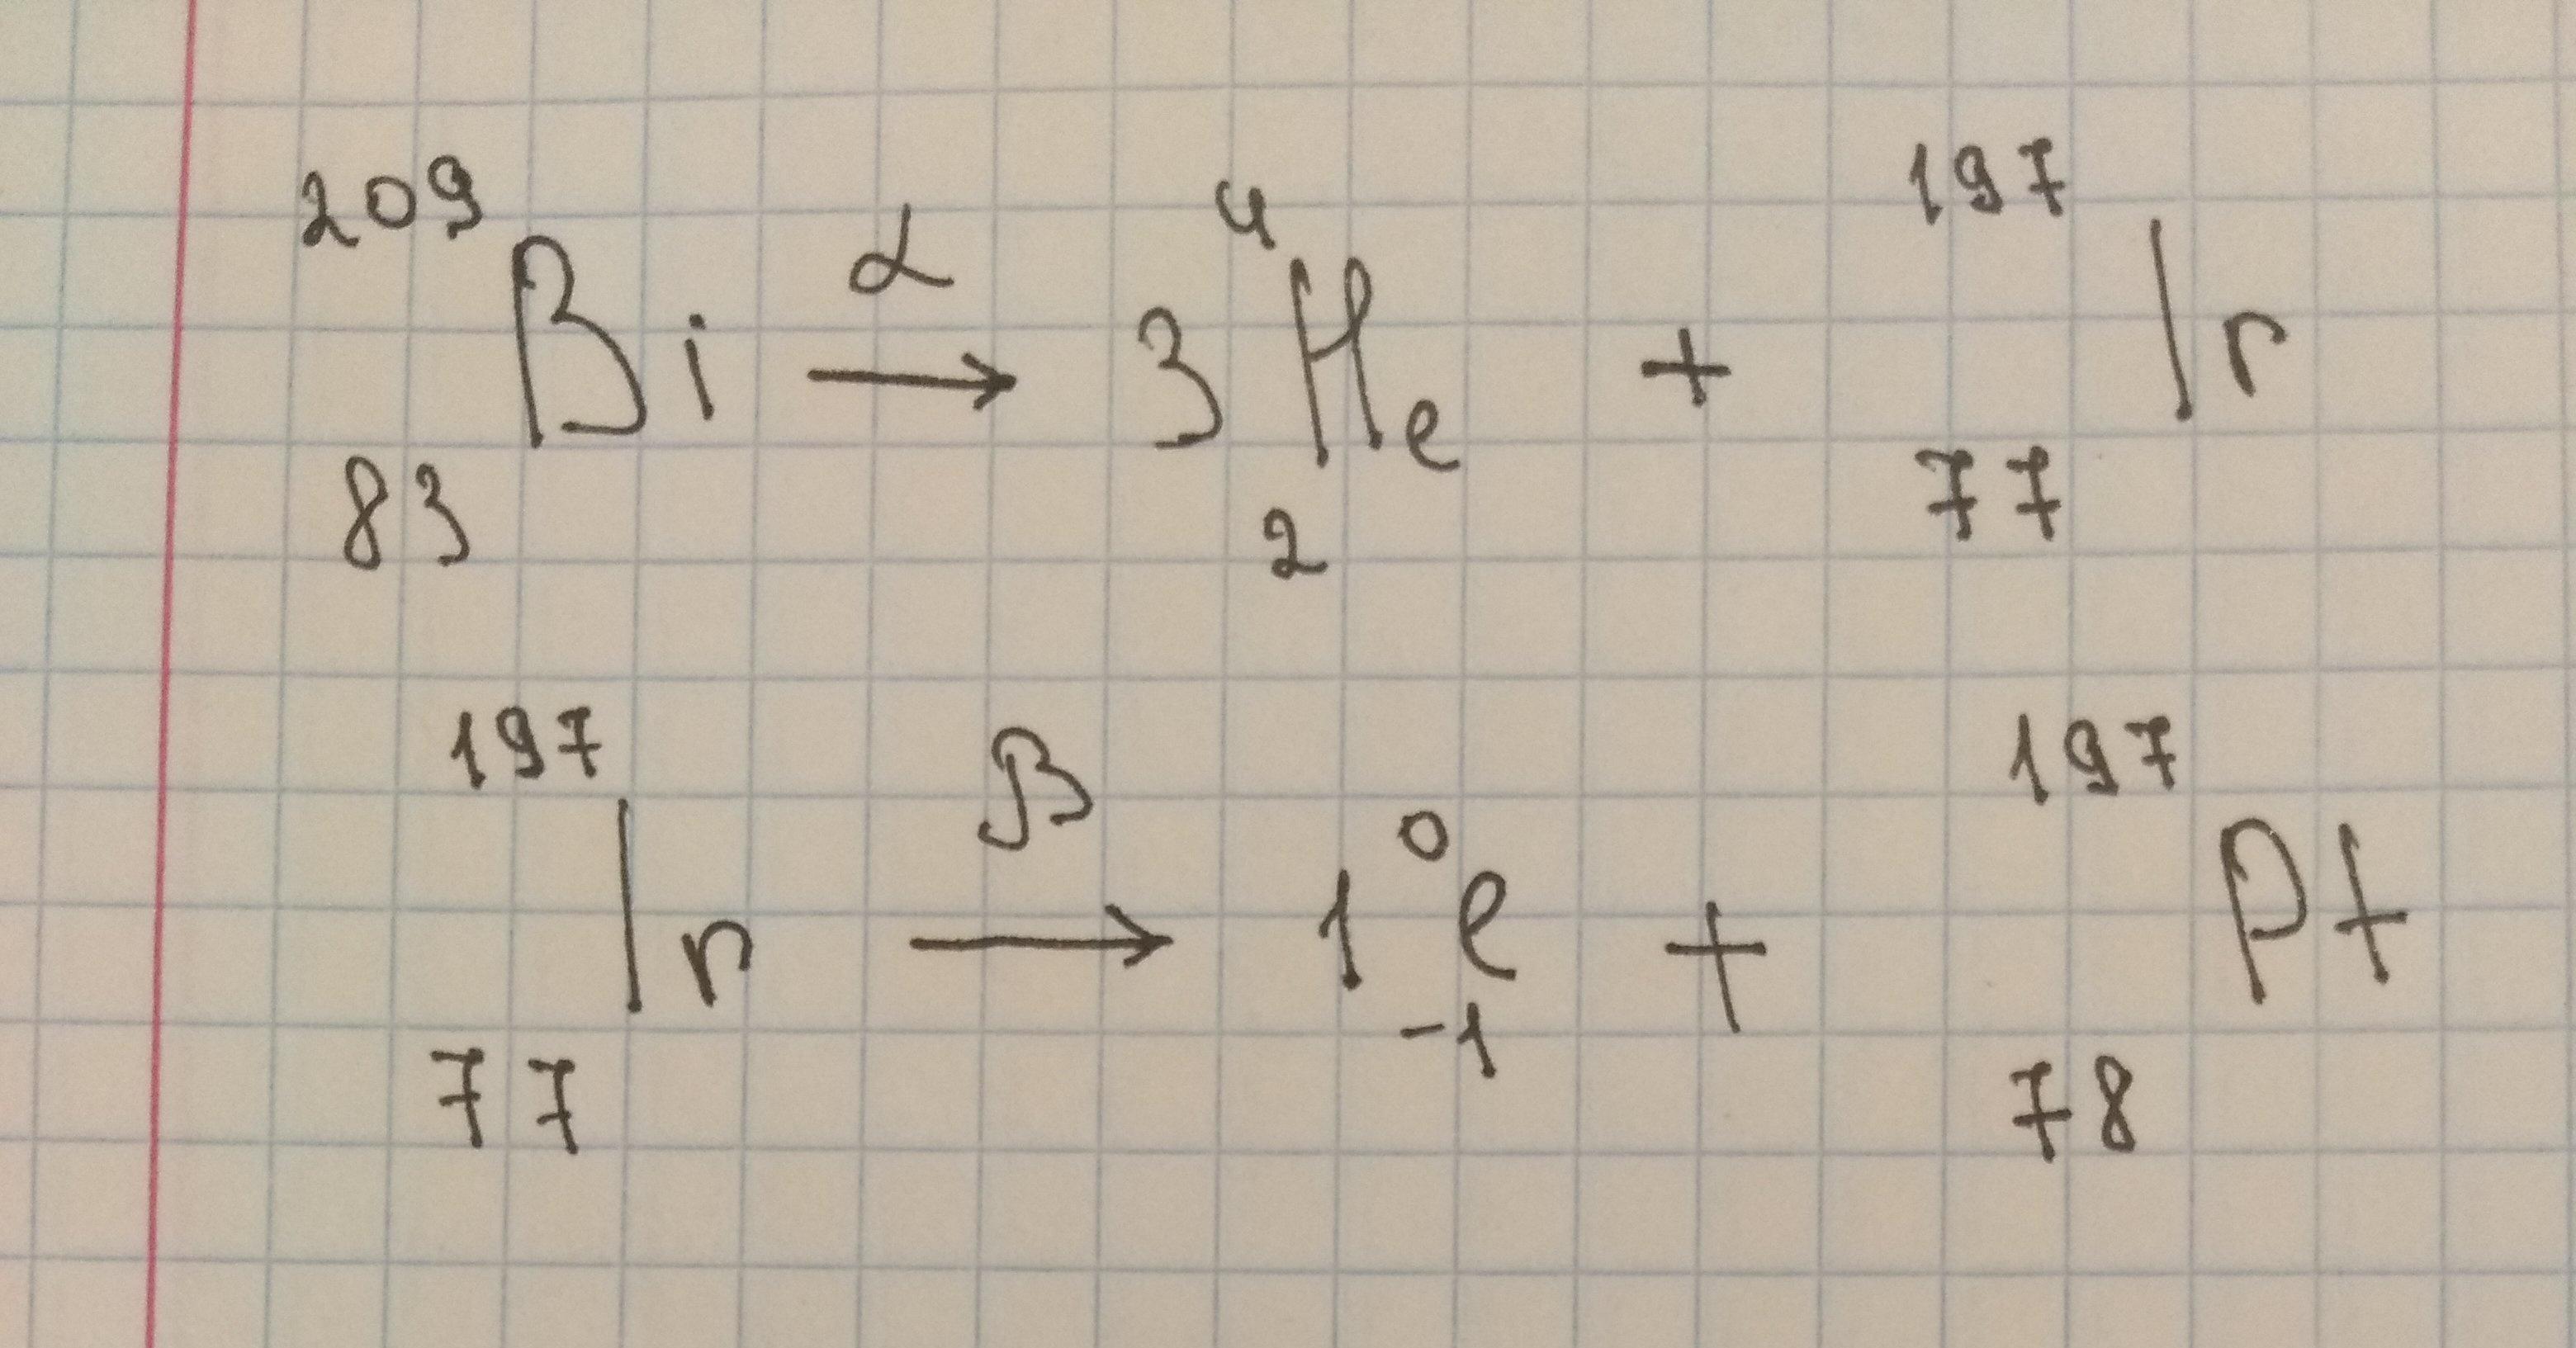 ²⁰⁹₈₃Bi →^α 3 ⁴₂He + ¹⁹⁷₇₇Ir
¹⁹⁷₇₇Ir →^β 1 ⁰₋₁e + ¹⁹⁷₇₈Pt